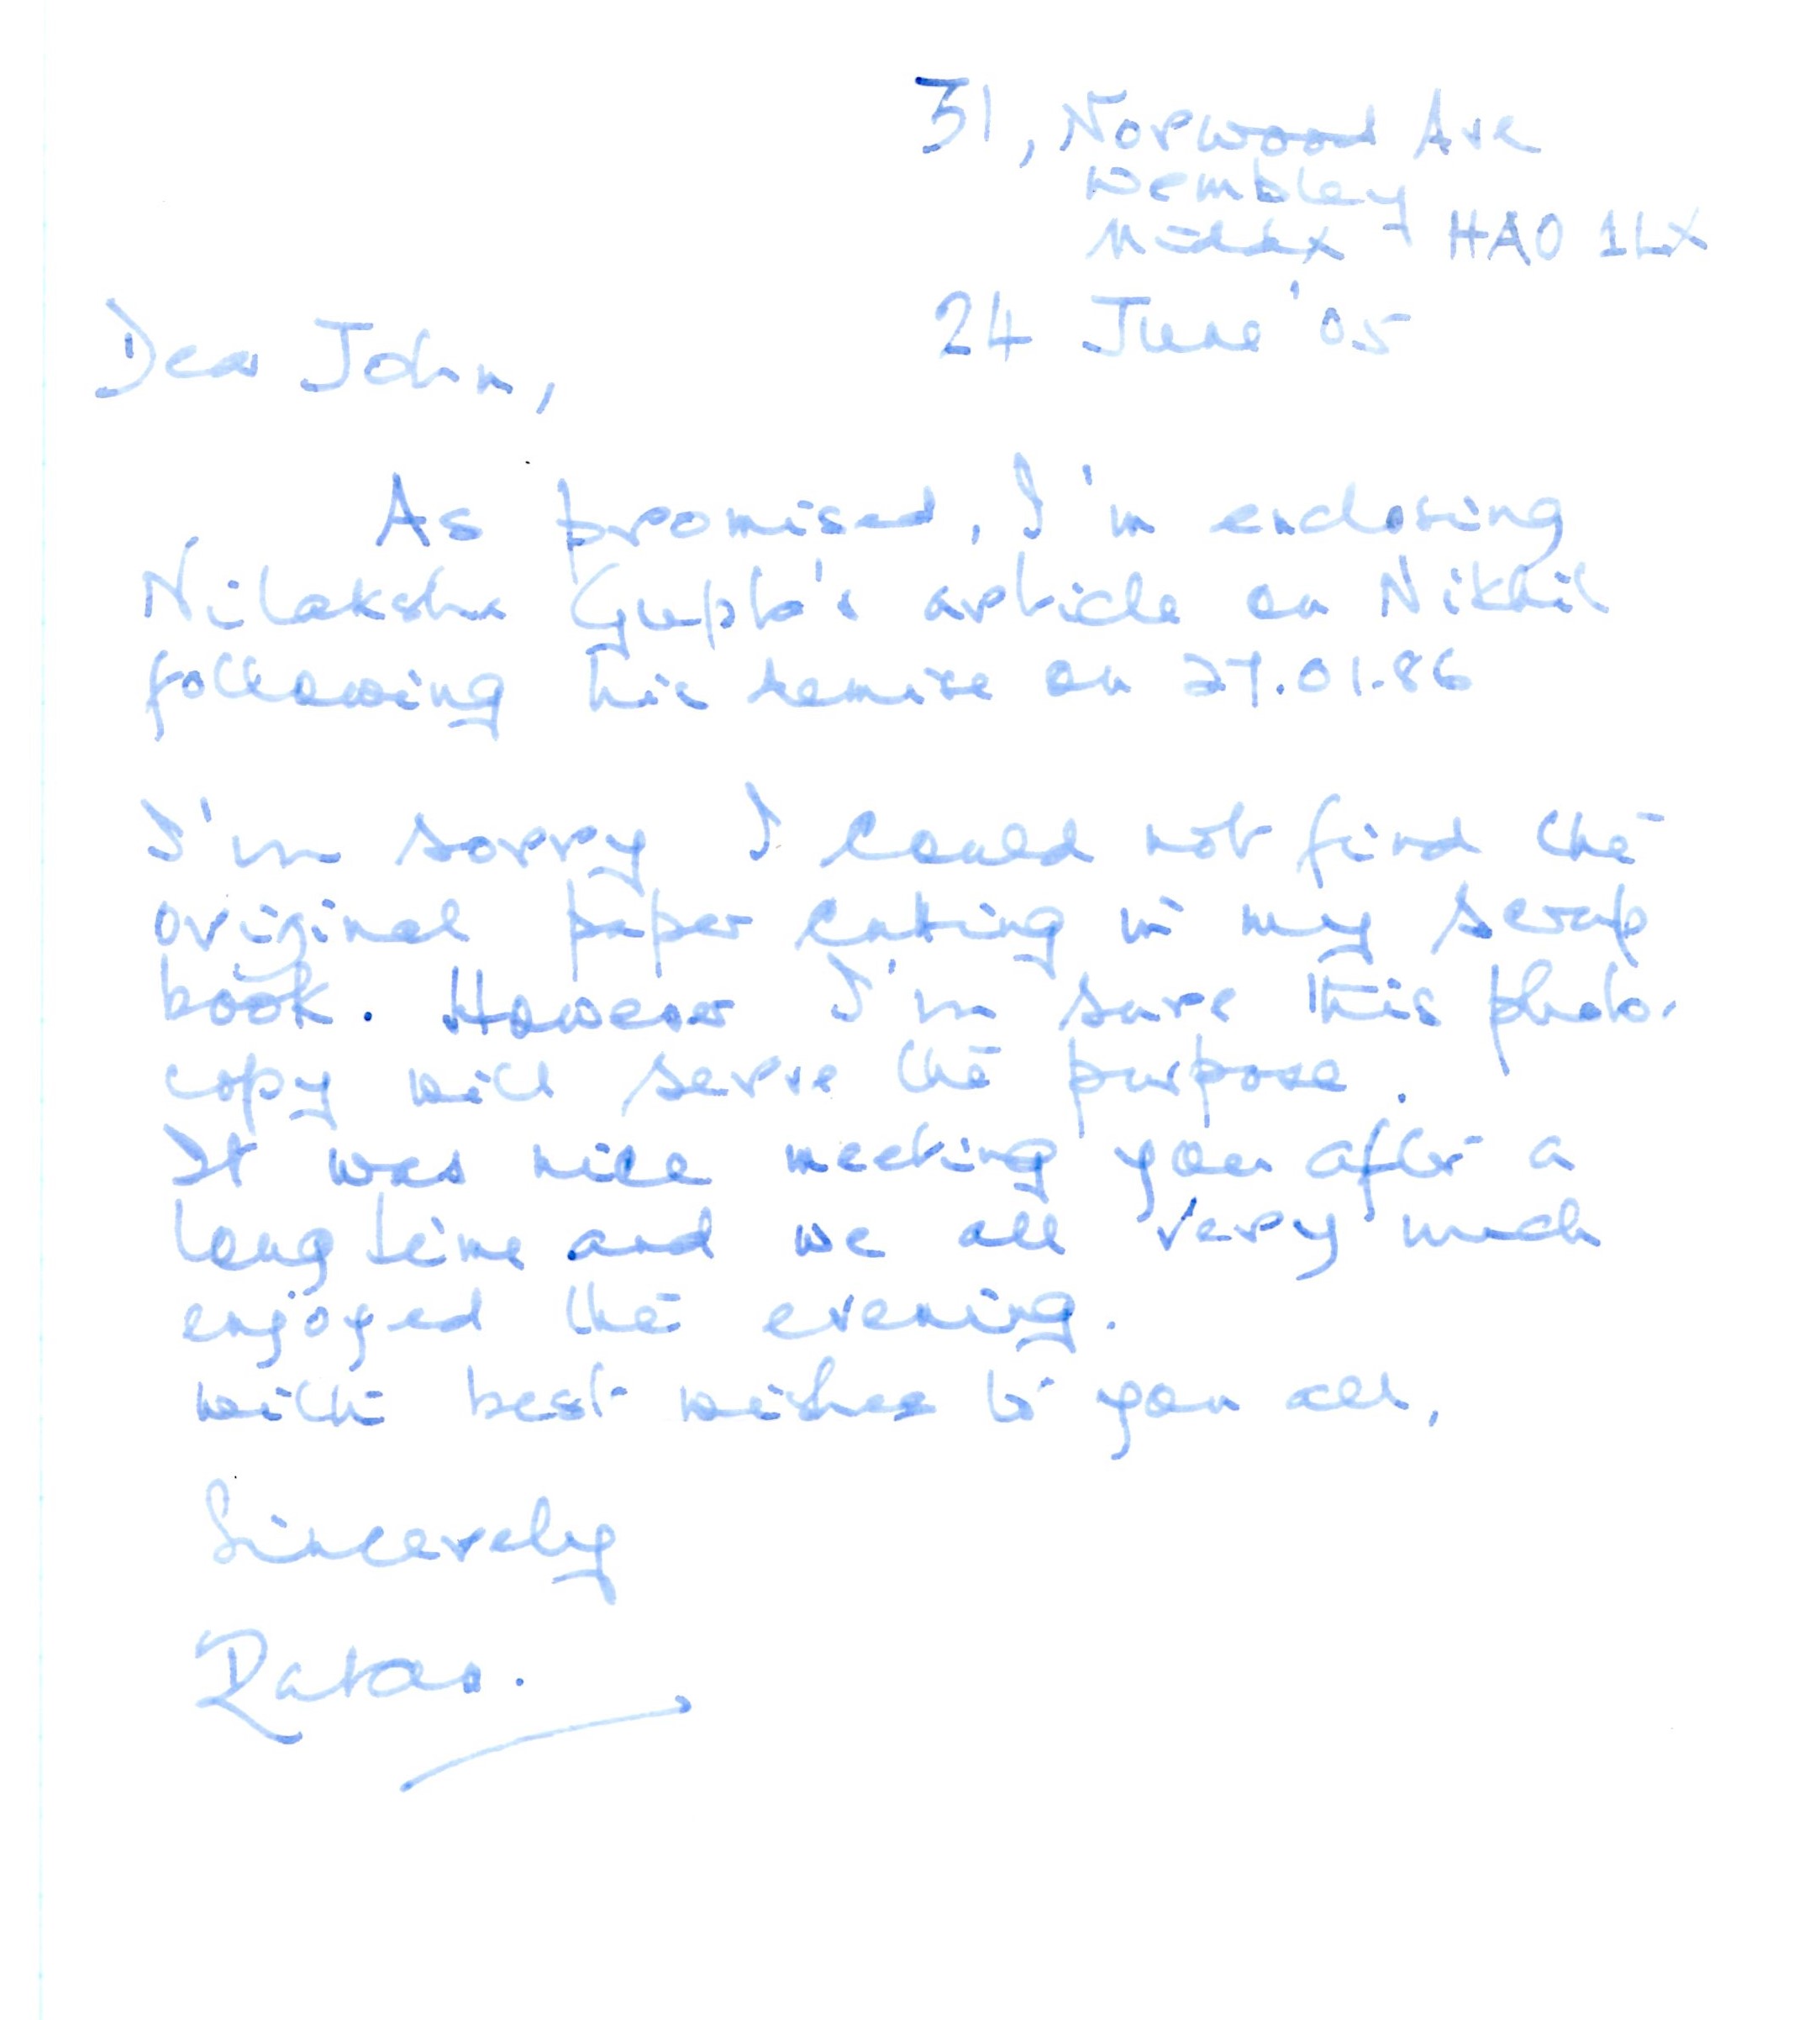 31, Norwood Ave
Wembley
Middx - HA0 1LX
24 June '05
Dear John,
As promised, I'm enclosing
Nilaksha Gupta's article on Nikhil
following his demise on 27.01.86
I'm sorry I could not find the
original paper cutting in my scrap
book. However I'm sure this photo-
copy will serve the purpose.
It was nice meeting you after a
long time and we all very much
enjoyed the evening.
with best wishes to you all,
Sincerely
Ratan.